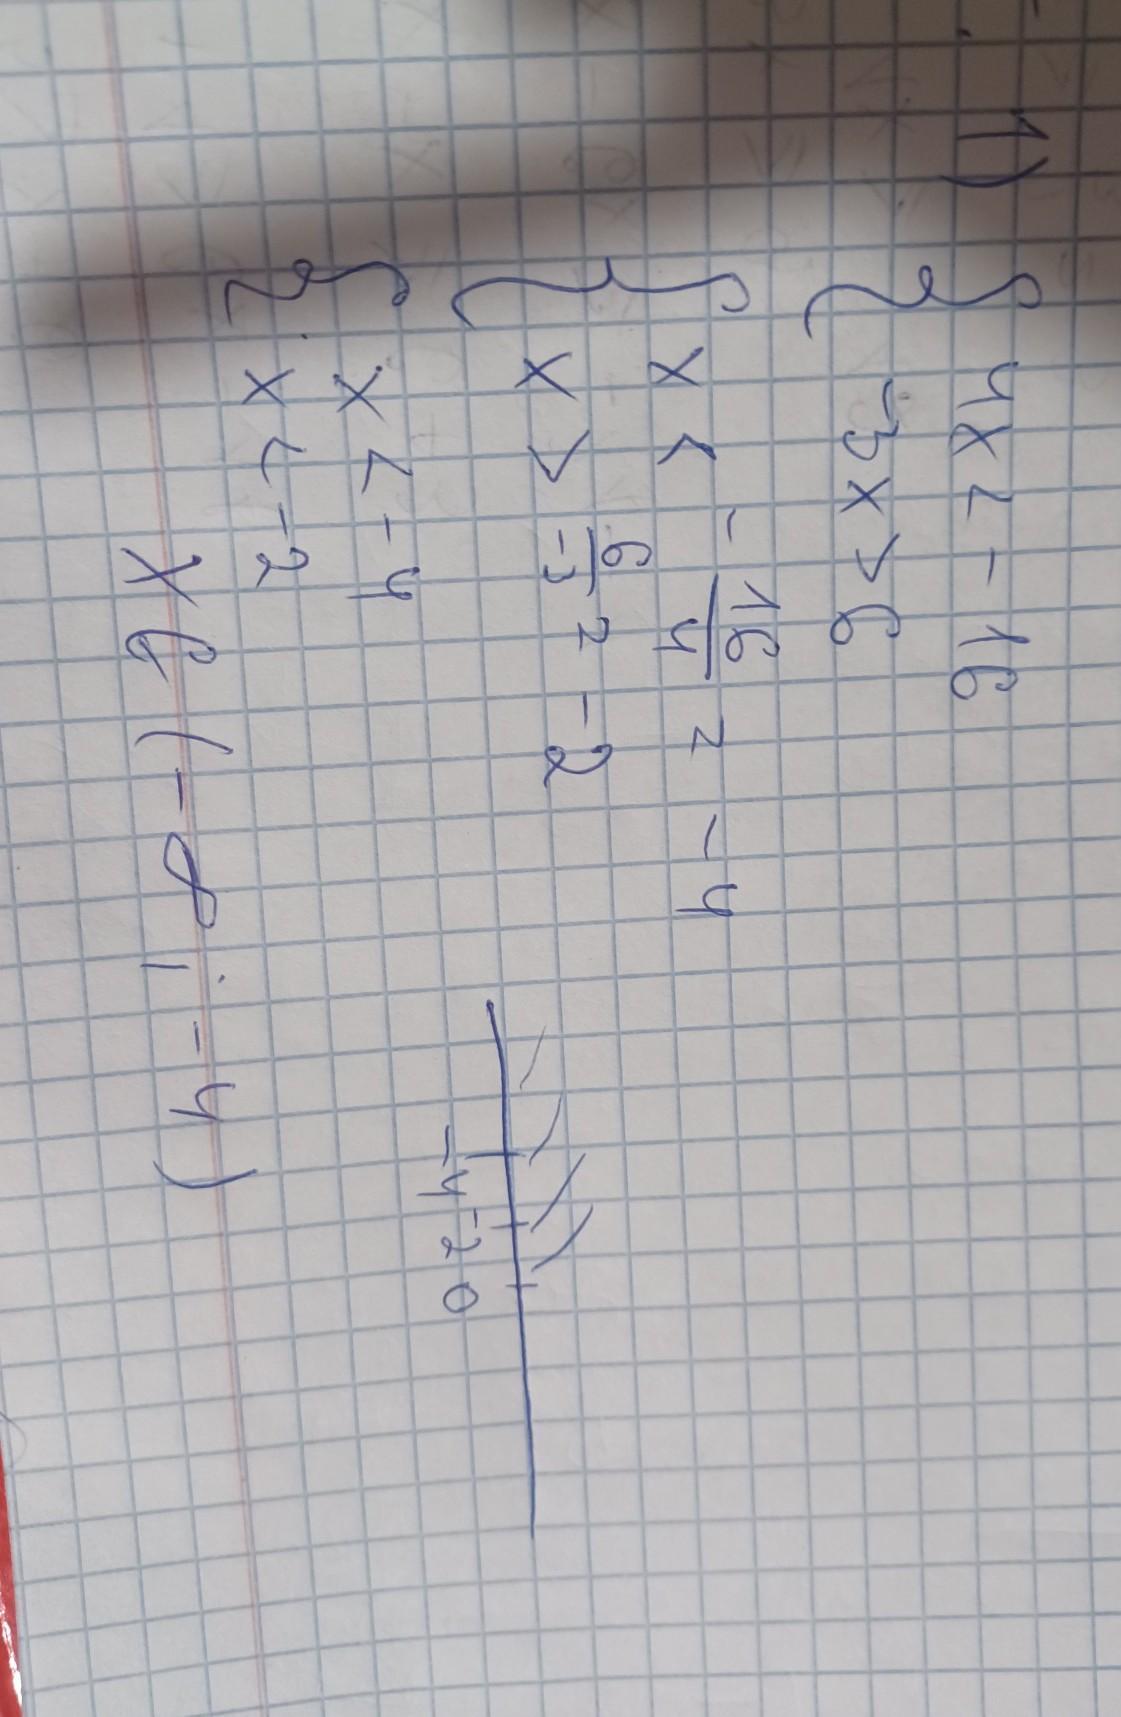 1) { 4x < - 16
-3x > 6
{ x < - 16/4 = -4
x > 6/-3 = -2
{ x < -4
x < -2
-4 -2 0
x ∈ (-∞; -4)